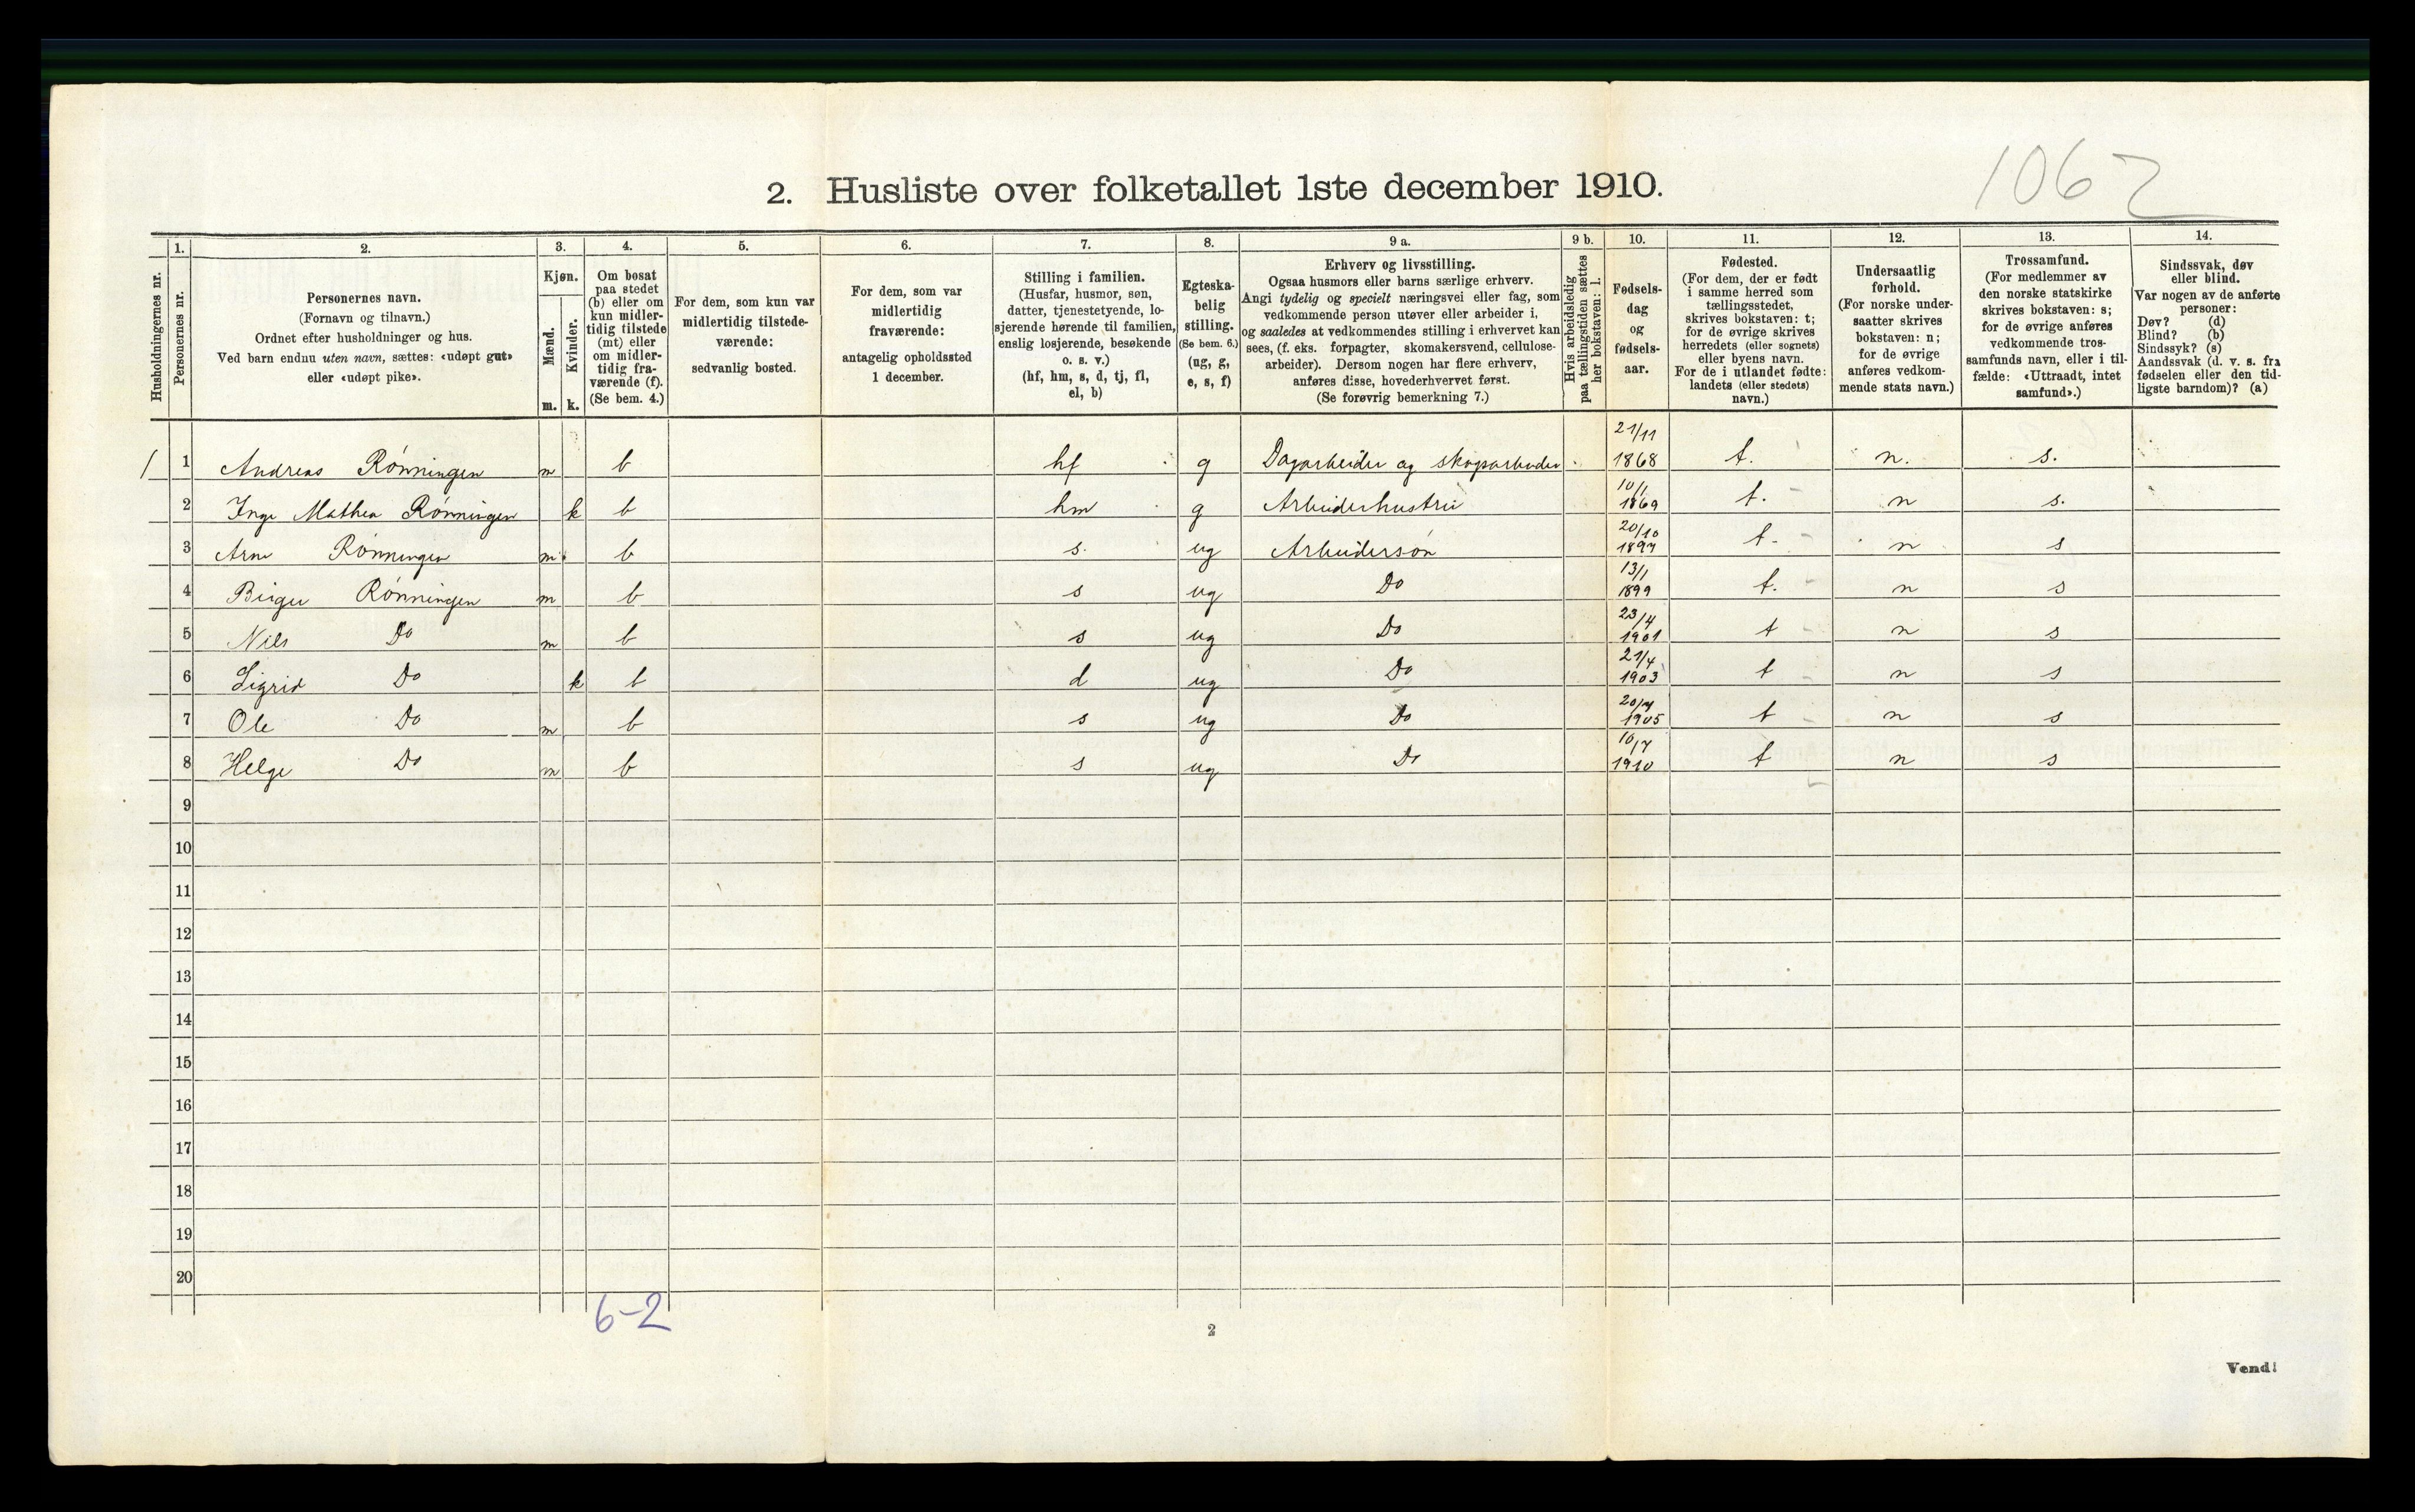 1062
2. Husliste over folketallet 1ste december 1910.
Husholdningernes nr.
1. Personernes nr.
2. Personernes navn. (Fornavn og tilnavn.) Ordnet efter husholdninger og hus. Ved barn endnu uten navn, sættes: «udøpt gut» eller «udøpt pike».
3. Kjøn. Mænd. m. Kvinder. k.
4. Om bosat paa stedet (b) eller om kun midlertidig tilstede (mt) eller om midlertidig fraværende (f). (Se bem. 4.)
5. For dem, som kun var midlertidig tilstedeværende: sedvanlig bosted.
6. For dem, som var midlertidig fraværende: antagelig opholdssted 1 december.
7. Stilling i familien. (Husfar, husmor, søn, datter, tjenestetyende, losjerende hørende til familien, enslig losjerende, besøkende o. s. v.) (hf, hm, s, d, tj, fl, el, b)
8. Egteskabelig stilling. (Se bem. 6.) (ug, g, e, s, f)
9 a. Erhverv og livsstilling. Ogsaa husmors eller barns særlige erhverv. Angi tydelig og specielt næringsvei eller fag, som vedkommende person utøver eller arbeider i, og saaledes at vedkommendes stilling i erhvervet kan sees, (f. eks. forpagter, skomakersvend, cellulosearbeider). Dersom nogen har flere erhverv, anføres disse, hovederhvervet først. (Se forøvrig bemerkning 7.)
9 b. Hvis arbeidsledig paa tællingstiden sættes her bokstaven: l.
10. Fødselsdag og fødselsaar.
11. Fødested. (For dem, der er født i samme herred som tællingsstedet, skrives bokstaven: t; for de øvrige skrives herredets (eller sognets) eller byens navn. For de i utlandet fødte: landets (eller stedets) navn.)
12. Undersaatlig forhold. (For norske undersaatter skrives bokstaven: n; for de øvrige anføres vedkommende stats navn.)
13. Trossamfund. (For medlemmer av den norske statskirke skrives bokstaven: s; for de øvrige anføres vedkommende trossamfunds navn, eller i tilfælde: «Uttraadt, intet samfund».)
14. Sindssvak, døv eller blind. Var nogen av de anførte personer: Døv? (d) Blind? (b) Sindssyk? (s) Aandssvak (d. v. s. fra fødselen eller den tidligste barndom)? (a)
1 1 Andreas Rönningen m b hf g Dagarbeider og skogsarbeider 21/11 1868 t. n. s.
2 Inge Mathea Rönningen k b hm g Arbeiderhustru 10/1 1869 t. n s.
3 Arne Rönningen m b s. ug Arbeidersön 20/10 1897 t. n s
4 Birger Rönningen m b s ug Do 13/1 1899 t. n s
5 Nils Do m b s ug Do 23/4 1901 t n s
6 Sigrid Do k b d ug Do 21/4 1903 t n s
7 Ole Do m b s ug Do 1905 t n s
8 Helge Do m b s ug Do 10/7 1910 t n s
9
10
11
12
13
14
15
16
17
18
19
20
6-2
2
Vend!